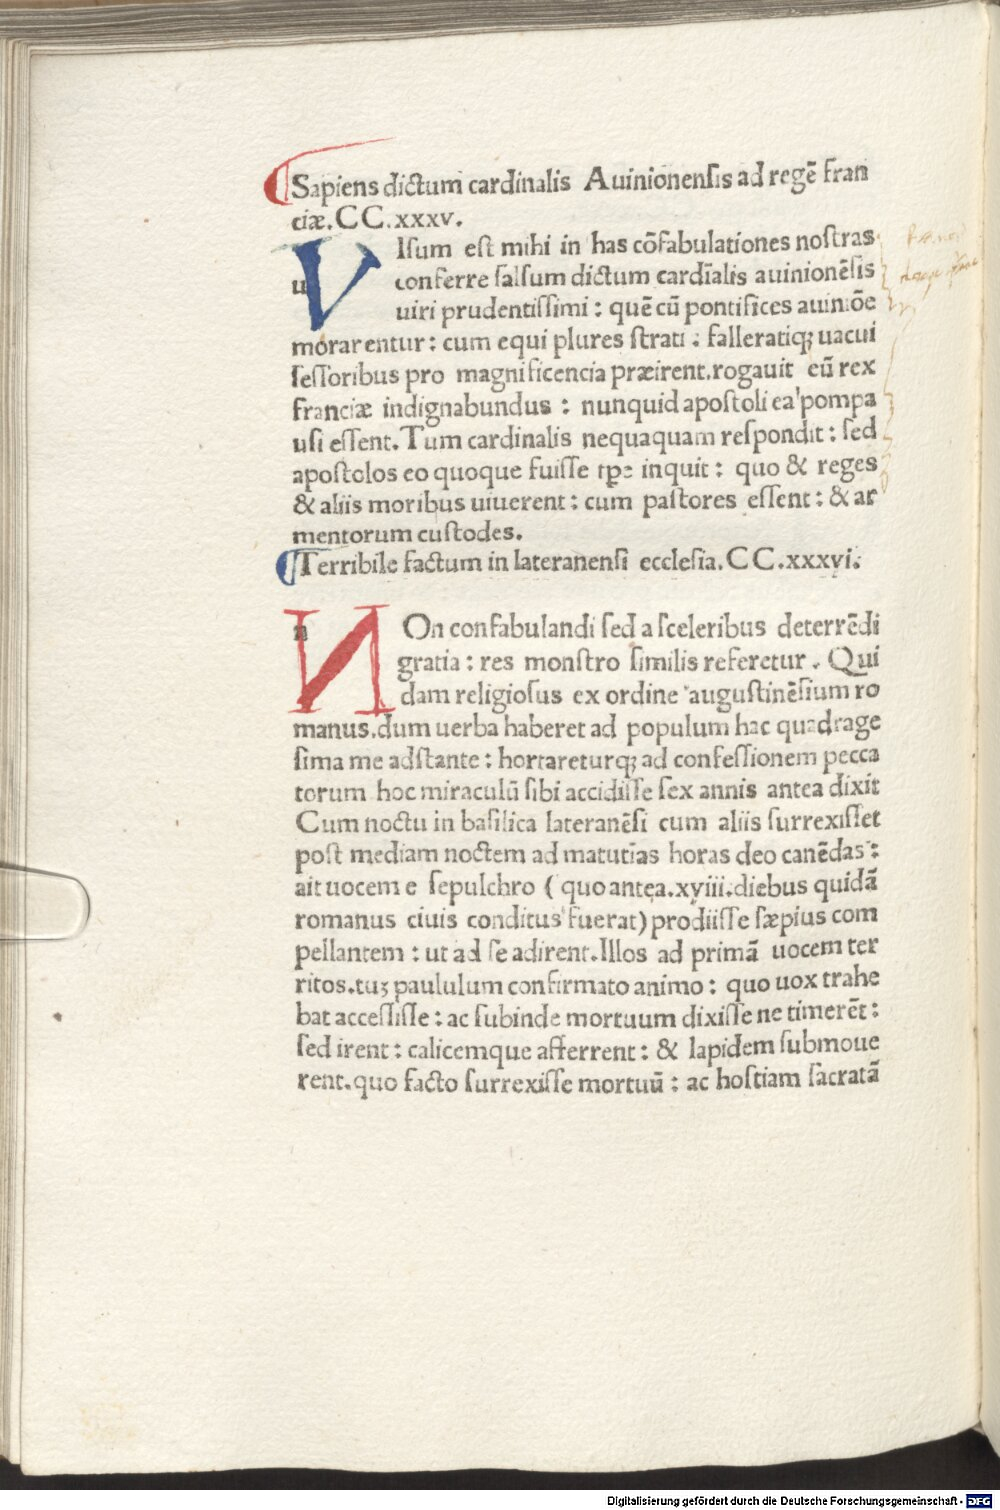 Sapiens dictum cardinalis Auinionenſis ad regē fran
ciæ. CC. xxxv.
VIſum eſt mihi in has cōfabulationes noſtras
conferre ſalſum dictum cardīalis auinionēſis
uiri prudentiſſimi : quē cū pontifices auiniōe
morarentur : cum equi plures ſtrati : falleratiqꝫ uacui
ſeſſoribus pro magnificencia præirent. rogauit eū rex
franciæ indignabundus : nunquid apoſtoli ea pompa
uſi eſſent. Tum cardinalis nequaquam reſpondit : ſed
apoſtolos eo quoque fuiſſe tꝑe inquit : quo & reges
& aliis moribus uiuerent : cum paſtores eſſent : & ar
mentorum cuſtodes.
Terribile factum in lateranenſi eccleſia. CC. xxxvi.
NOn confabulandi ſed a ſceleribus deterrēdi
gratia : res monſtro ſimilis referetur . Qui
dam religioſus ex ordine auguſtinēſium ro
manus. dum uerba haberet ad populum hac quadrage
ſima me adſtante : hortareturqꝫ ad confeſſionem pecca
torum hoc miraculū ſibi accidiſſe ſex annis antea dixit
Cum noctu in baſilica lateranēſi cum aliis ſurrexiſſet
poſt mediam noctem ad matutīas horas deo canēdas :
ait uocem e ſepulchro ( quo antea. xviii. diebus quidā
romanus ciuis conditus fuerat) prodiiſſe ſæpius com
pellantem : ut ad ſe adirent. Illos ad primā uocem ter
ritos. tuꝫ paululum confirmato animo : quo uox trahe
bat acceſſiſſe : ac ſubinde mortuum dixiſſe ne timerēt :
ſed irent : calicemque afferrent : & lapidem ſubmoue
rent. quo facto ſurrexiſſe mortuū : ac hoſtiam ſacratā
Digitalisierung gefördert durch die Deutsche Forschungsgemeinschaft - DFG